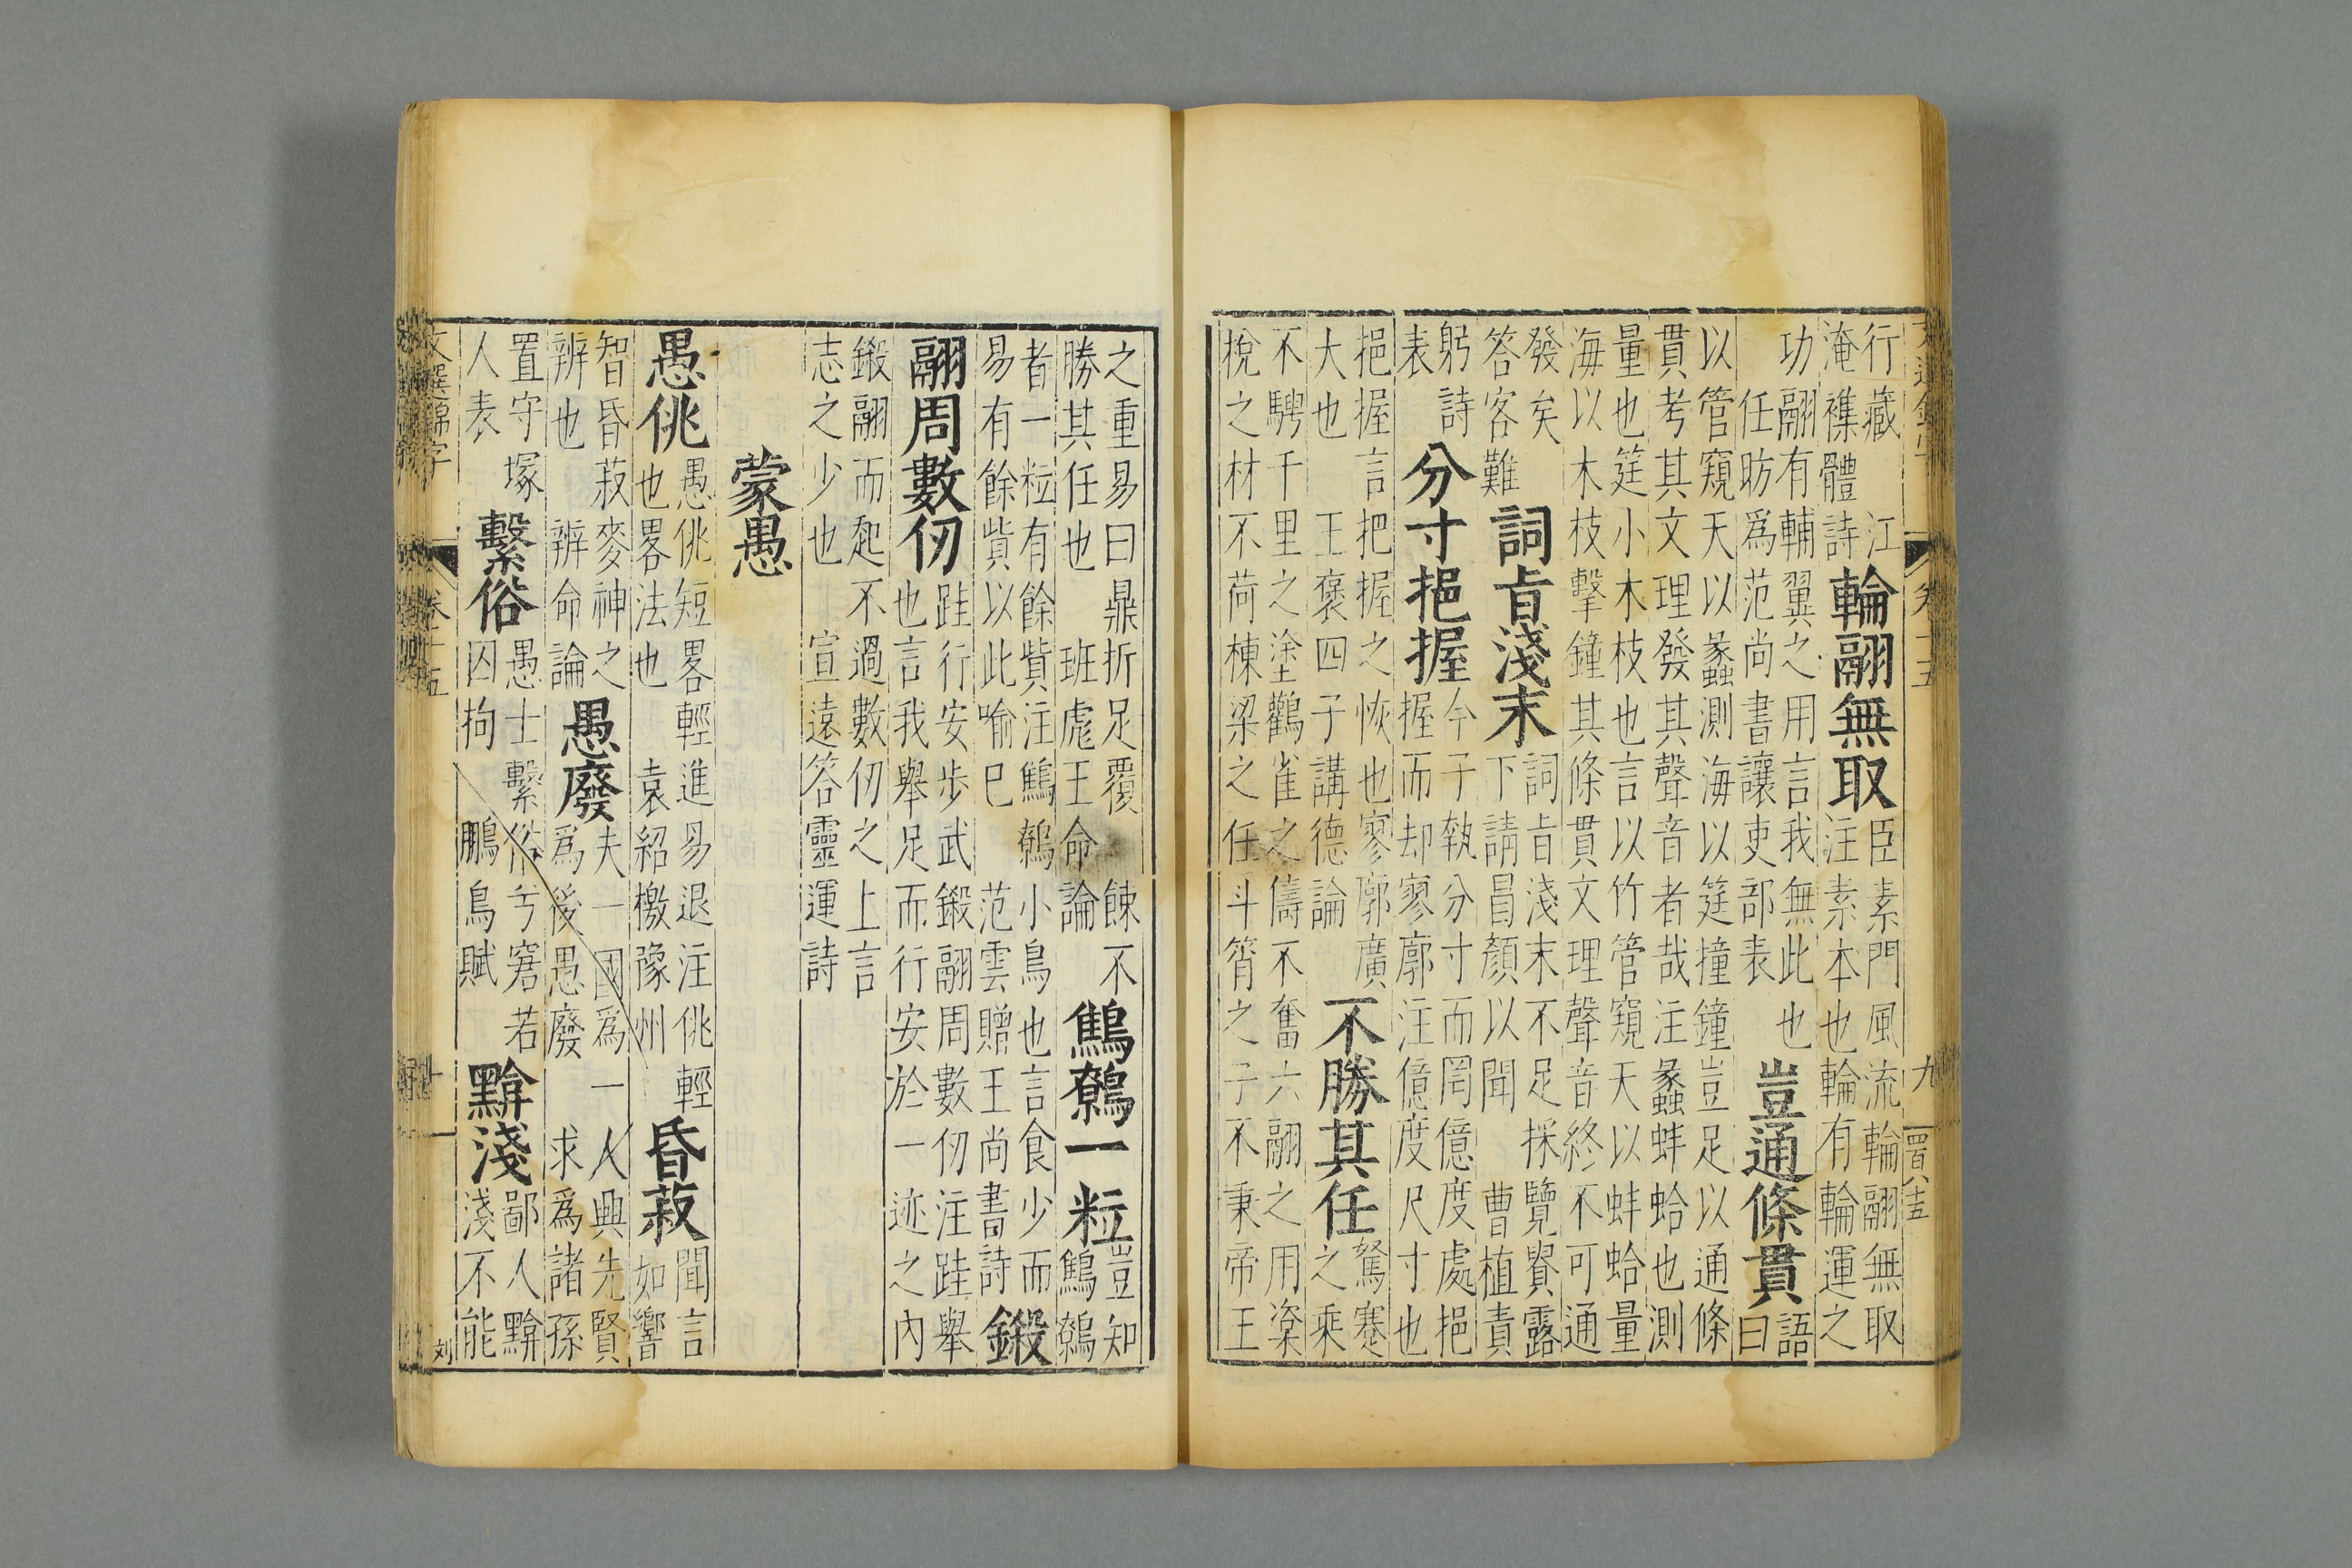 行藏　江
淹襍體詩
輪翮無取
臣素門風流輪翮無取
注素本也輪有輪運之
功翮有輔翼之用言我無此也
任昉爲范尚書讓吏部表
豈通條貫
語
曰
以管窺天以蠡測海以筳撞鐘豈足以通條
貫考其文理發其聲音者哉注蠡蚌蛤也測
量也筳小木枝也言以竹管窺天以蚌蛤量
海以木枝擊鐘其條貫文理聲音終不可通
發矣
答客難
詞㫖淺末
詞㫖淺末不足採覽賢露
下請冒顏以聞　曹植責
躬詩
表
分寸挹握
今子執分寸而罔億度處挹
握而却寥廓注億度尺寸也
挹握言把握之恢也寥廓廣
大也　王褒四子講德論
不勝其任
駑蹇
之乘
不騁千里之塗鸛雀之儔不奮六翮之用楶
梲之材不荷棟梁之任斗筲之子不秉帝王
文選錦字
卷十五
九
之重易曰鼎折足覆　餗不
勝其任也　班彪王命論
鷦鷯一粒
豈知
鷦鷯
者一粒有餘貲注鷦鷯小鳥也言食少而
易有餘貲以此喻巳　范雲贈王尚書詩
鎩
翮周數仞
跬行安步武鎩翮周數仞注跬舉
也言我舉足而行安於一迹之內
鎩翮而起不過數仞之上言
志之少也　宣遠答靈運詩
蒙愚
愚佻
愚佻短畧輕進易退注佻輕
也畧法也　袁紹檄豫州
昏菽
聞言
如響
智昏菽麥神之
辨也　辨命論
愚廢
夫一國爲一人興先賢
爲後愚廢　求爲諸孫
置守塚
人表
繫俗
愚士繫俗兮窘若
囚拘　鵩鳥賦
黭淺
鄙人黭
淺不能
文選錦字
卷十五
刘